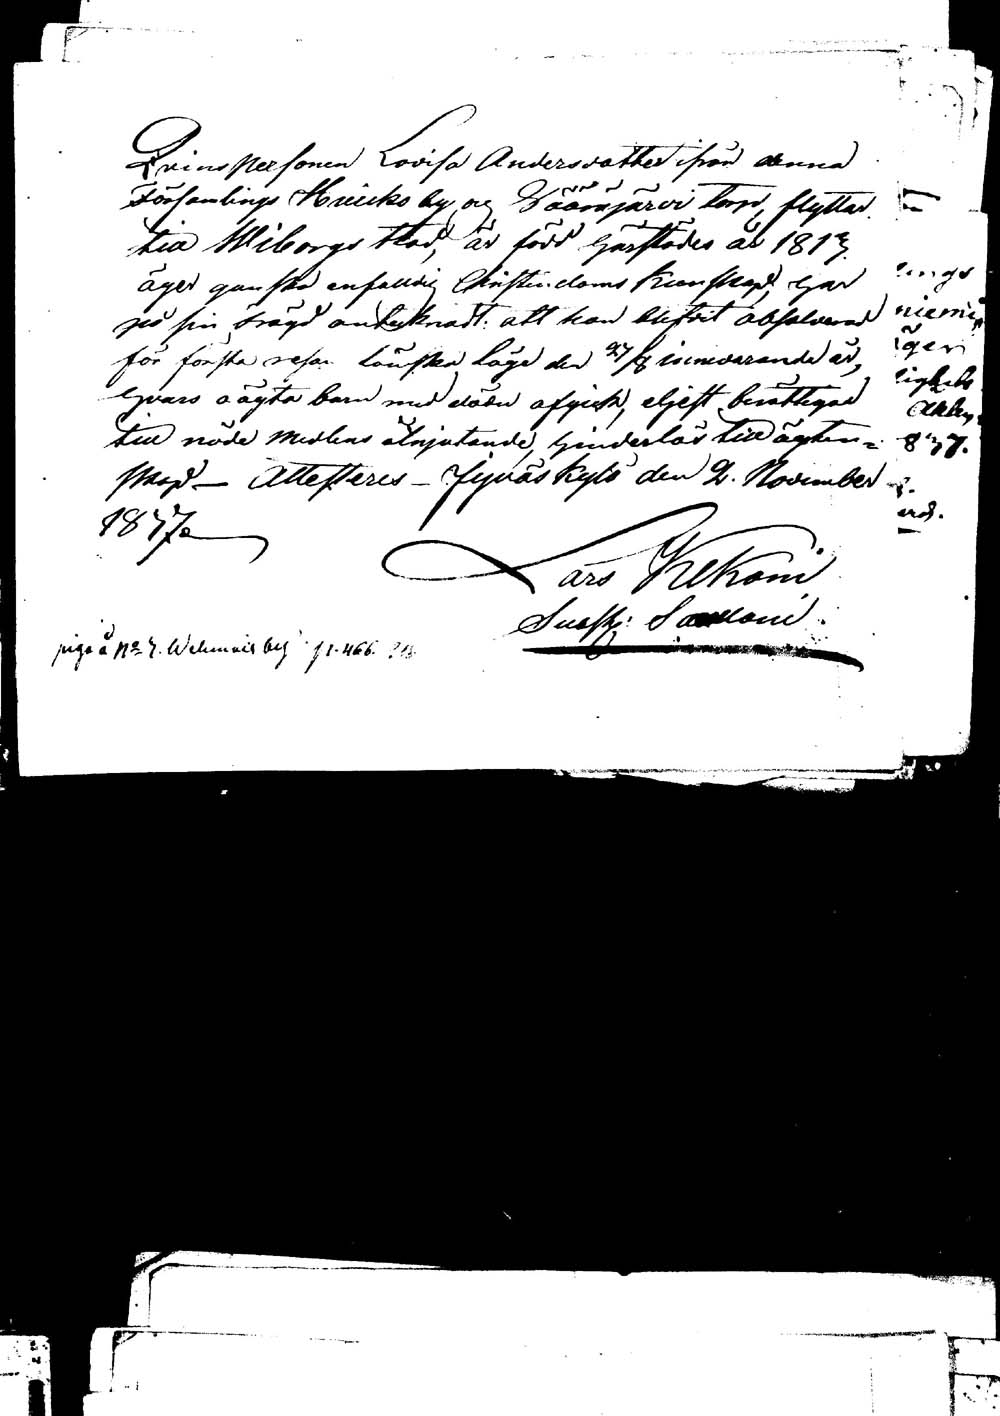 Qvinspersonen Lovisa Andersdotter ifrån denna
Församlings by och Väärnjärvi torp, flyttar
till Wiborgs stad, är född härstädes år 181
äger ganska enfaldig Christendoms Kunskap, har
på sin frägd anteknadt: att hon blifvit absolverad
för första resan Lönska läge den 27/8 innevarande år,
hvars oägta barn med döden afgick, eljest berättigad
till nåde medlens åtnjutande, hinderlös till ägten=
skap – Attesteras – Jyväskylä den 2. November
1837.
Lars Kekoni
piga å No 7. by f 1. 466.